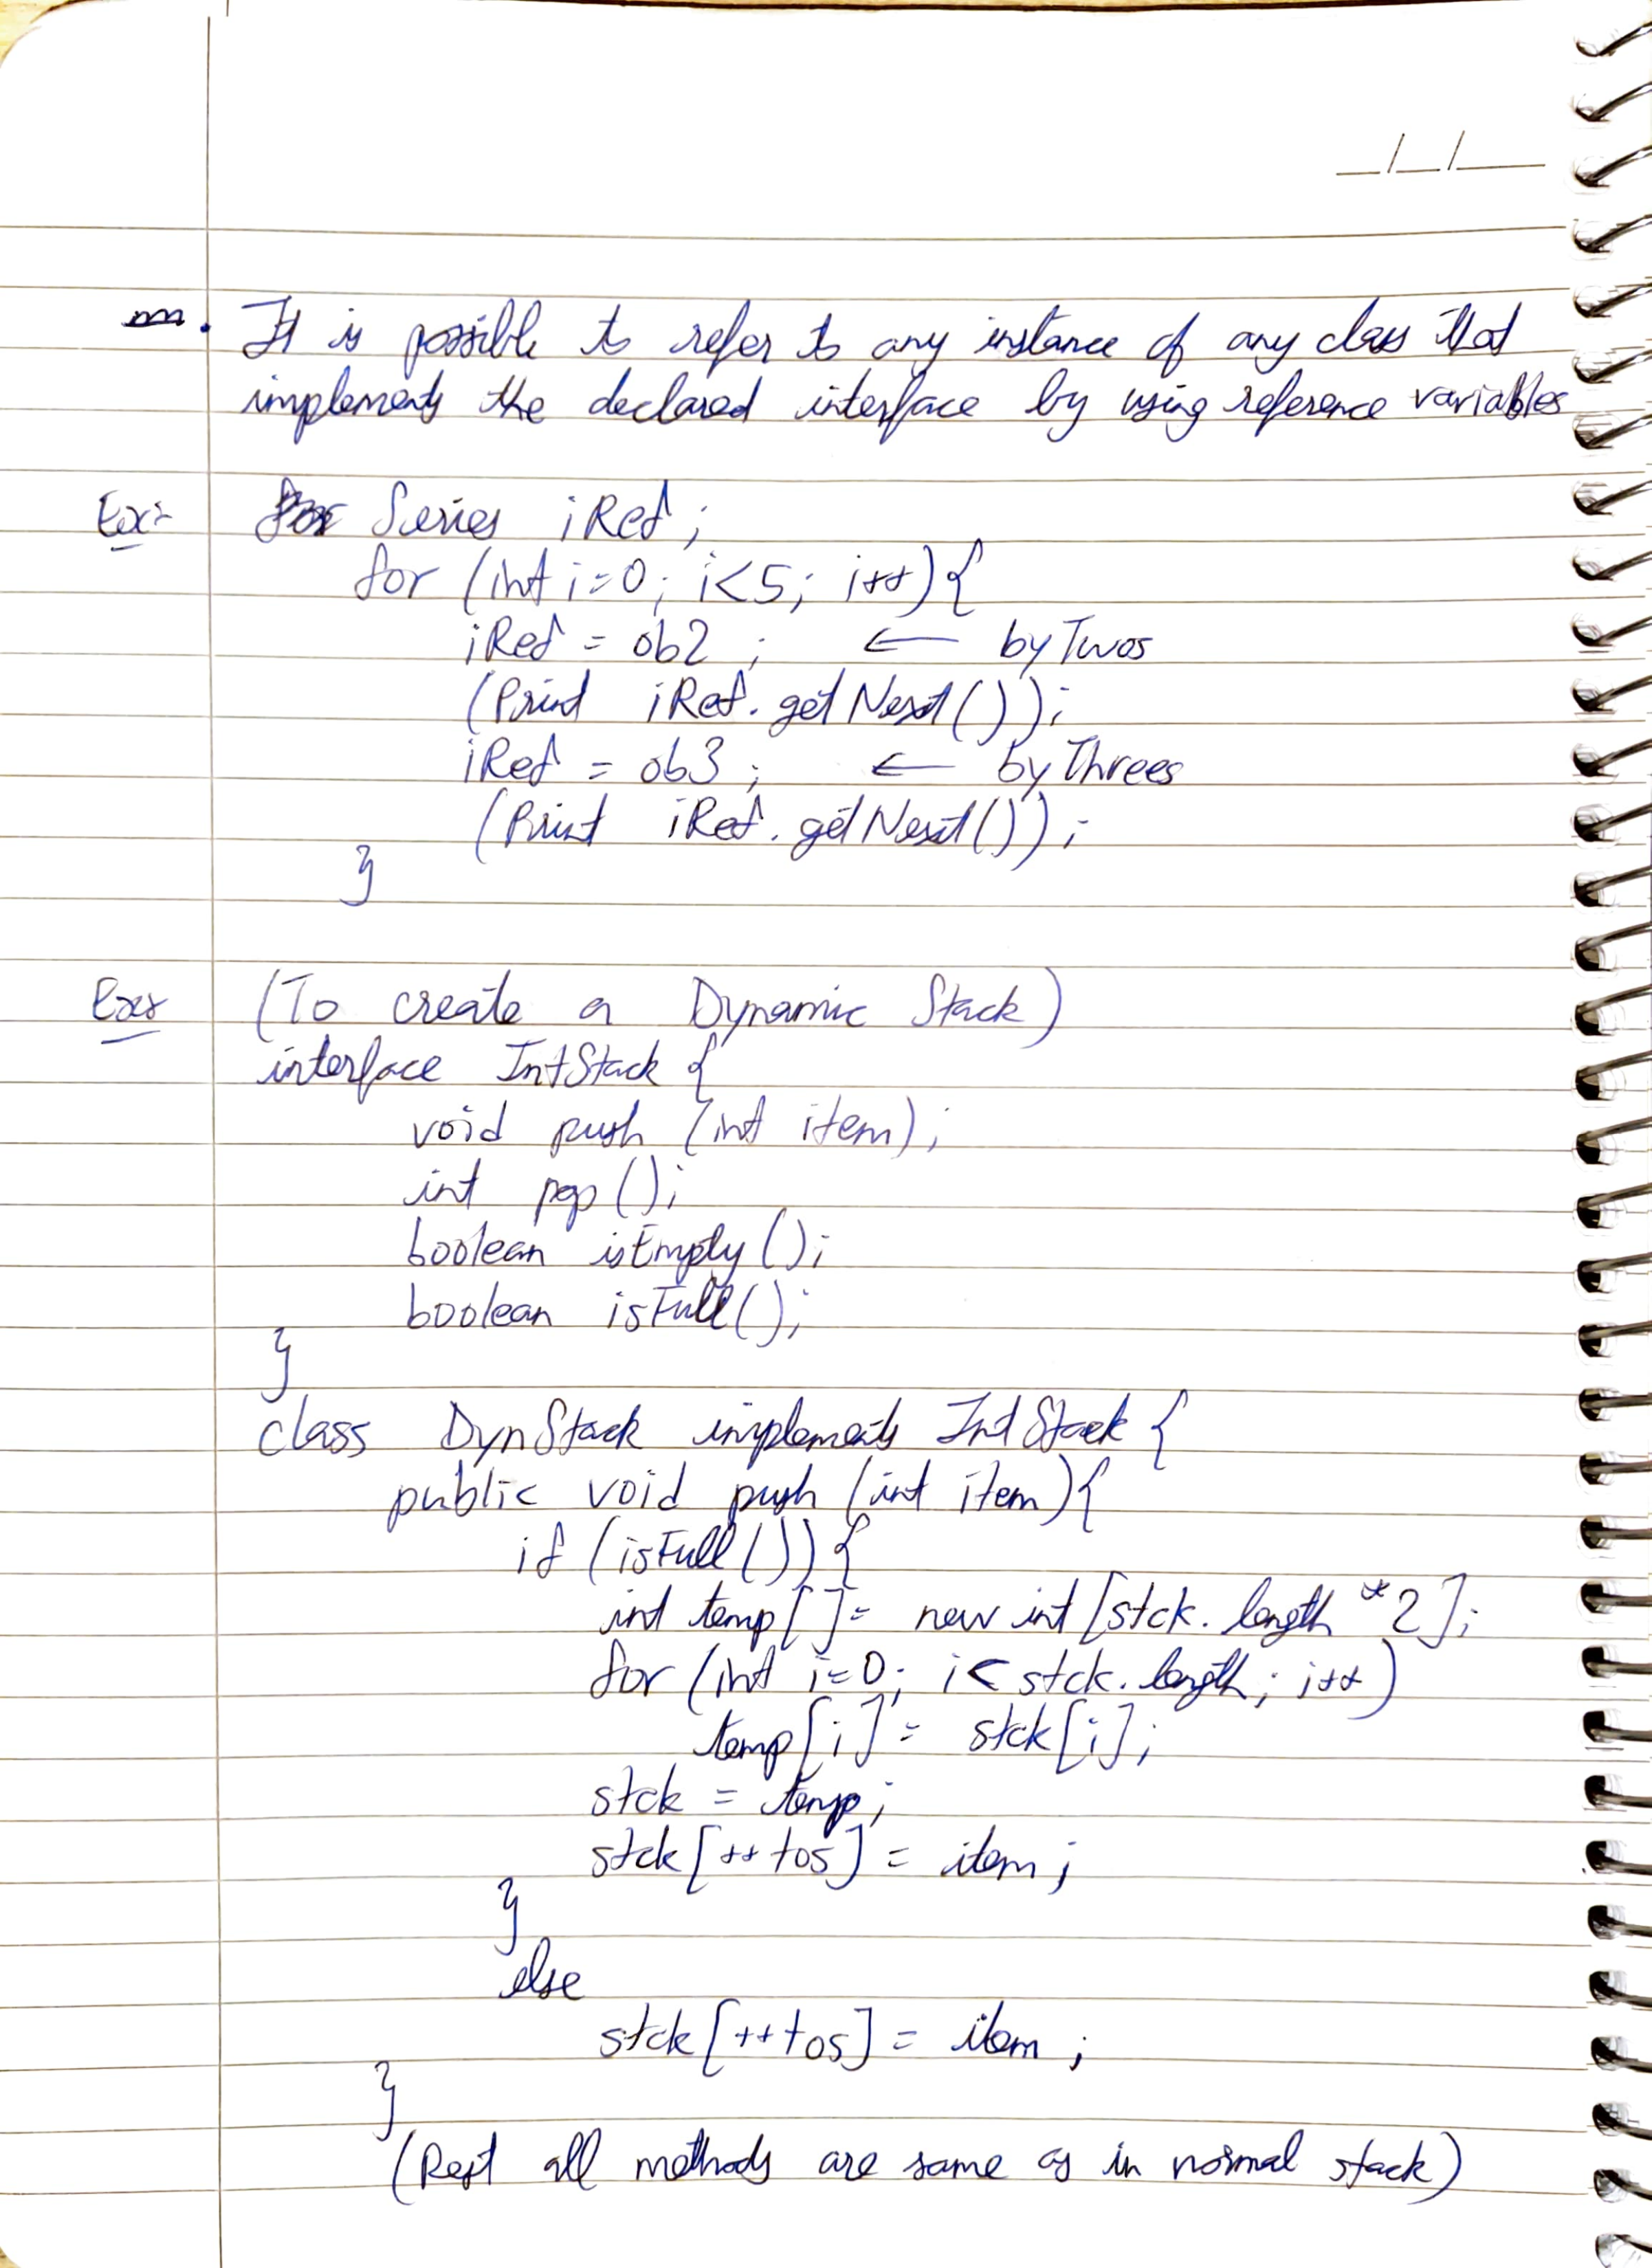 _/_/__
. It is possible to refer to any instance of any class that
implements the declared interface by using reference variables
Ex:- Series iRef ;
for (int i=0; i<5; i++){
iRef = ob2 ; ← byTwos
(Print iRef.getNext());
iRef = ob3 ; ← byThrees
(Print iRef.getNext());
}
Ex:- (To create a Dynamic Stack)
interface IntStack {
void push (int item);
int pop ();
boolean isEmpty ();
boolean isFull ();
}
class DynStack implements IntStack {
public void push (int item){
if (isFull ()) {
int temp[ ]= new int [stck.length *2];
for (int i=0; i< stck.length; i++)
temp[i] = stck[i];
stck = temp;
stck[++tos] = item;
}
else
stck[++tos] = item ;
}
(Rest all methods are same as in normal stack)